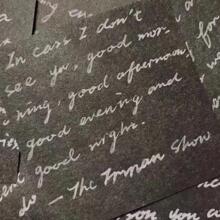 In case I don't
see ya, good mor-
ning, good afternoon
good evening and
good night.
— The Truman Show